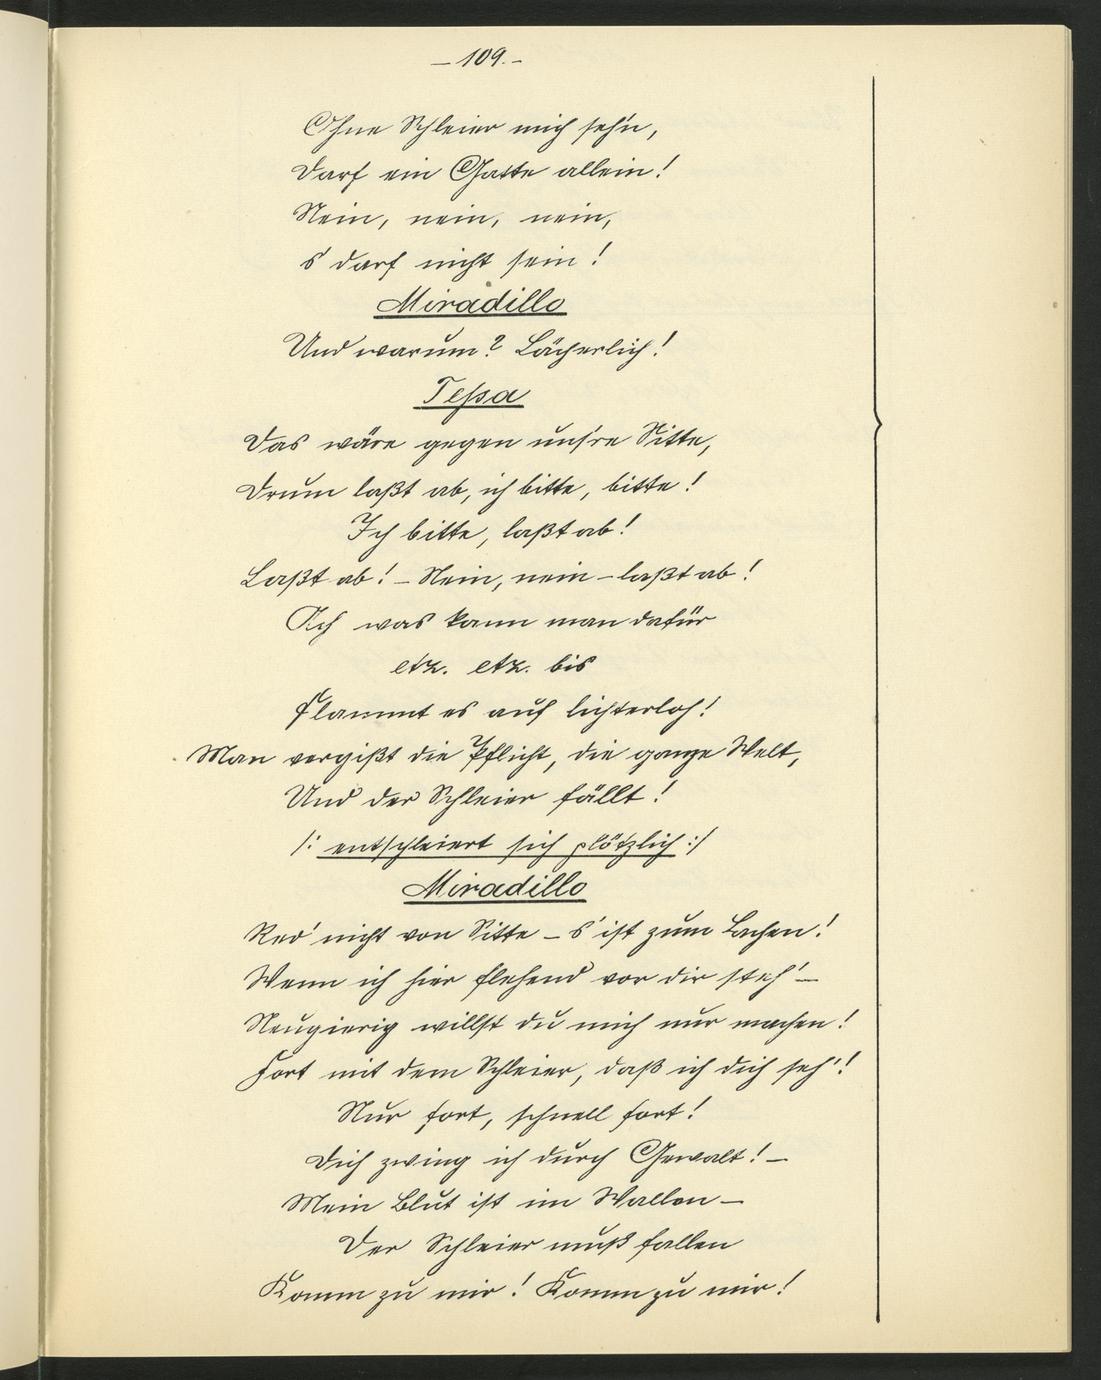 – 109. –
Ohne Schleier mich seh'n,
Darf ein Gatte allein!
Nein, nein, nein,
s' darf nicht sein!
Miradillo
Und warum? Lächerlich!
Tessa
Das wäre gegen uns're Sitte,
Drum laßt ab, ich bitte, bitte!
Ich bitte, laßt ab!
Laßt ab! – Nein, nein – laßt ab!
Ach was kann man dafür
etz. etz. bis
Flammt es auf lichterloh!
Man vergißt die Pflicht, die ganze Welt,
Und der Schleier fällt!
/: entschleiert sich plötzlich :/
Miradillo
Red' nicht von Sitte – s' ist zum Lachen!
Wenn ich hier flehend vor dir steh' –
Neugierig willst du mich nur machen!
Fort mit dem Schleier, daß ich dich seh'!
Nur fort, schnell fort!
Dich zwing ich durch Gewalt! –
Mein Blut ist im Wallen –
Der Schleier muß fallen
Komm zu mir! Komm zu mir!